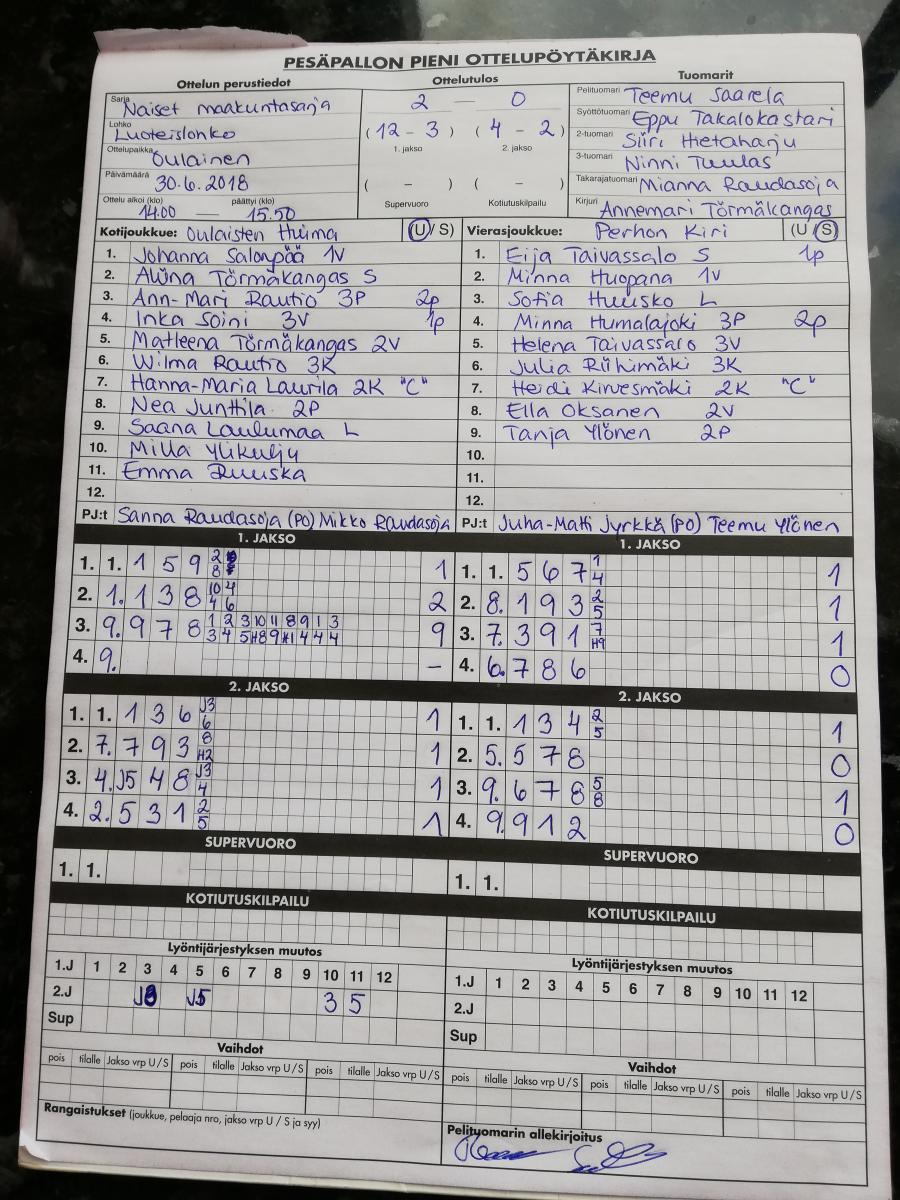 PESÄPALLON PIENI OTTELUPÖYTÄKIRJA
Ottelun perustiedot
Ottelutulos
Tuomarit
Sarja Naiset maakuntasarja
Lohko Luoteislohko
Ottelupaikka Oulainen
Päivämäärä 30.6.2018
Ottelu alkoi (klo) päättyi (klo)
14.00 — 15.50
2 — 0
(12 - 3) (4 - 2)
1. jakso 2. jakso
( - ) ( - )
Supervuoro Kotiutuskilpailu
Pelituomari Teemu Saarela
Syöttötuomari Eppu Takalokastari
2-tuomari Siiri Hietaharju
3-tuomari Ninni Tuulas
Takarajatuomari Mianna Raudasoja
Kirjuri Annemari Törmäkangas
Kotijoukkue: Oulaisten Huima (U/S)
1. Johanna Salonpää 1V
2. Aliina Törmäkangas S
3. Ann-Mari Rautio 3P 2p
4. Inka Soini 3V 1p
5. Matleena Törmäkangas 2V
6. Wilma Rautio 3K
7. Hanna-Maria Laurila 2K "C"
8. Nea Junttila 2P
9. Saana Laulumaa L
10. Milla Ylikulju
11. Emma Ruuska
12.
PJ:t Sanna Raudasoja (PO) Mikko Raudasoja
Vierasjoukkue: Perhon Kiri (U/S)
1. Eija Taivassalo S 1p
2. Minna Huopana 1V
3. Sofia Huusko L
4. Minna Humalajoki 3P 2p
5. Helena Taivassalo 3V
6. Julia Riihimäki 3K
7. Heidi Kirvesmäki 2K "C"
8. Ella Oksanen 2V
9. Tanja Ylönen 2P
10.
11.
12.
PJ:t Juha-Matti Jyrkkä (PO) Teemu Ylönen
1. JAKSO
1. 1. 1 5 9 2 8 1
2. 1. 1 3 8 10 4 4 6 2
3. 9. 9 7 8 1 2 3 10 11 8 9 1 3 9
3 4 5 H8 9 H1 4 4 4
4. 9. –
1. JAKSO
1. 1. 5 6 7 1 4 1
2. 8. 1 9 3 2 5 1
3. 7. 3 9 1 7 H9 1
4. 6. 7 8 6 0
2. JAKSO
1. 1. 1 3 6 J3 6 1
2. 7. 7 9 3 8 H2 1
3. 4. J5 4 8 J3 4 1
4. 2. 5 3 1 2 5 1
2. JAKSO
1. 1. 1 3 4 2 5 1
2. 5. 5 7 8 0
3. 9. 6 7 8 5 8 1
4. 9. 9 1 2 0
SUPERVUORO
1. 1.
SUPERVUORO
1. 1.
KOTIUTUSKILPAILU
KOTIUTUSKILPAILU
Lyöntijärjestyksen muutos
1.J 1 2 3 4 5 6 7 8 9 10 11 12
2.J J5 3 5
Sup
Lyöntijärjestyksen muutos
1.J 1 2 3 4 5 6 7 8 9 10 11 12
2.J
Sup
Vaihdot
pois tilalle Jakso vrp U/S pois tilalle Jakso vrp U/S pois tilalle Jakso vrp U/S
Vaihdot
pois tilalle Jakso vrp U/S pois tilalle Jakso vrp U/S pois tilalle Jakso vrp U/S
Rangaistukset (joukkue, pelaaja nro, jakso vrp U / S ja syy)
Pelituomarin allekirjoitus